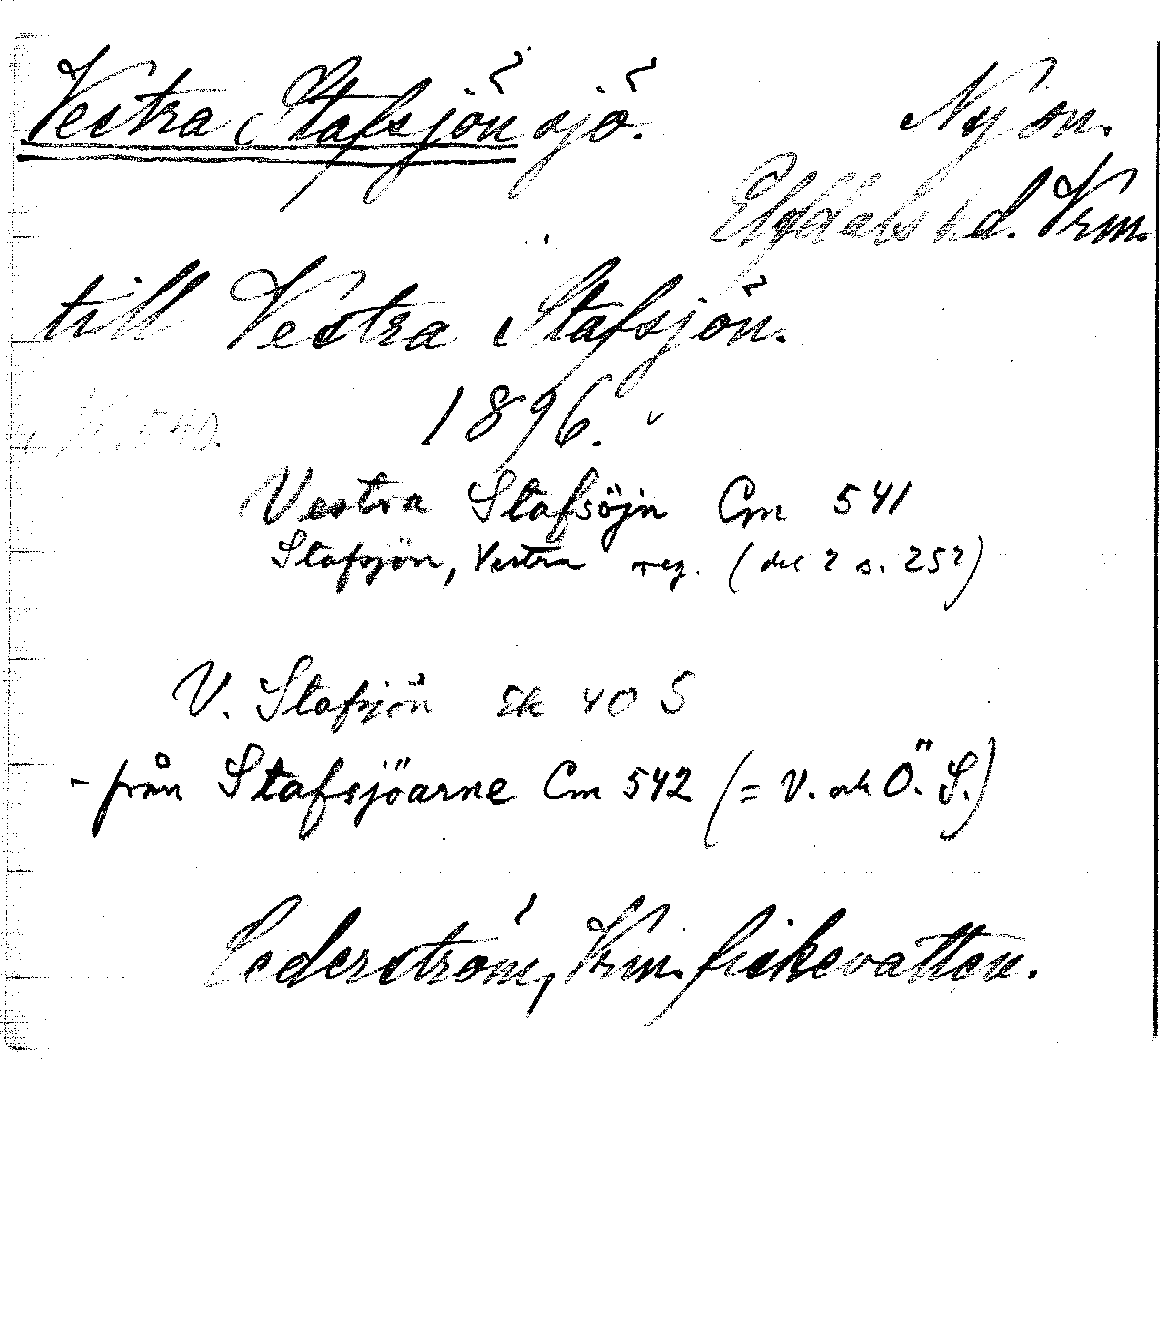 Vestra Stafsjön sjö.
Ny sn.
Elfdals hd. Vrm.
till Vestra Stafsjön.
1896.
540.
Vestra Stafsöjn Cm 541
Stafsjön, Vestra reg. (del 2 s. 252)
V. Stafsjön Ek 40 S
- från Stafsjöarne Cm 542 (= V. och Ö. S.)
Cederström, Vrm. fiskevatten.